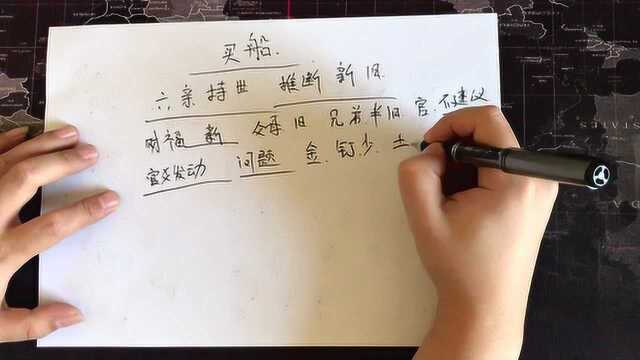 买船.
六亲持世 推断新旧.
财福新 父母旧 兄弟半旧 官.不建议
官爻发动 问题 金.钉少. 土